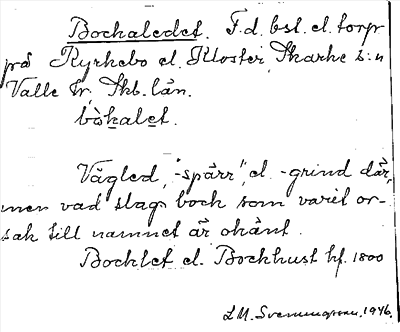 Bockaledet. F.d. bst. el. torp
på Kyrkebo el. Kloster, Skarke s:n
Valle hr, Skb. län.
bòkalet.
Vägled, "-spärr", el. -grind där,
men vad slags bock som varit or-
sak till namnet är okänt.
Bocklet el. Bockhust hf. 1800
L.M. Svennungsson, 1946.